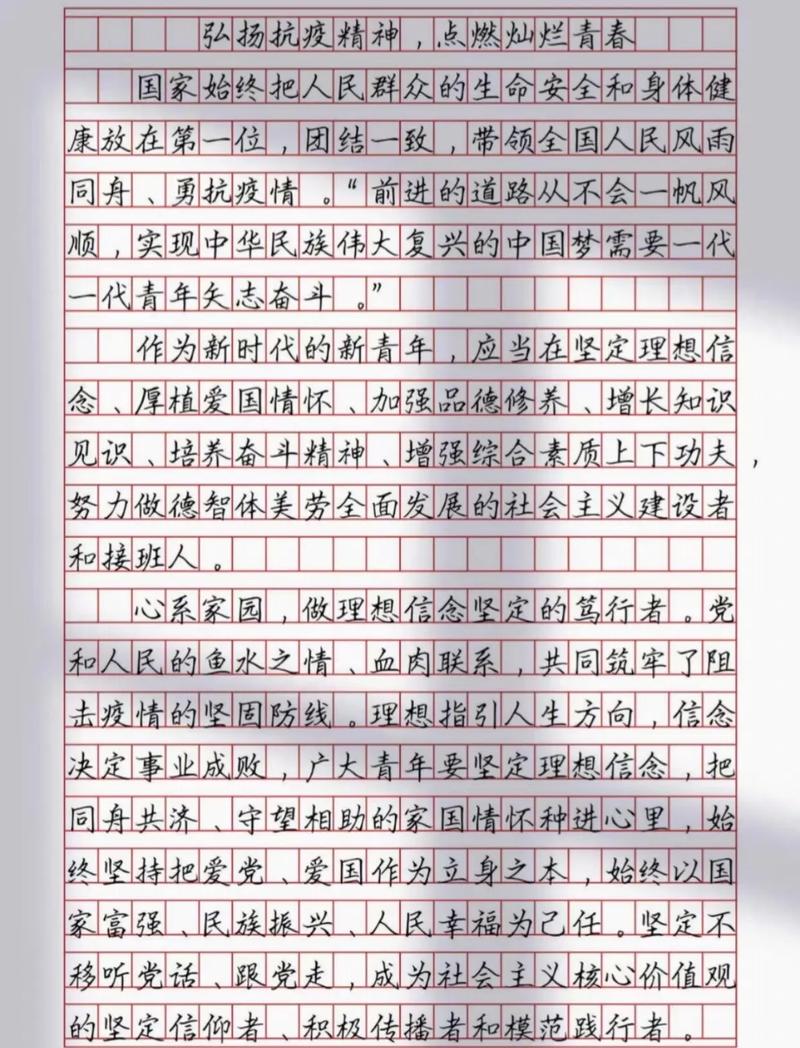 弘扬抗疫精神，点燃灿烂青春
国家始终把人民群众的生命安全和身体健
康放在第一位，团结一致，带领全国人民风雨
同舟、勇抗疫情。“前进的道路从不会一帆风
顺，实现中华民族伟大复兴的中国梦需要一代
一代青年矢志奋斗。”
作为新时代的新青年，应当在坚定理想信
念、厚植爱国情怀、加强品德修养、增长知识
见识、培养奋斗精神、增强综合素质上下功夫，
努力做德智体美劳全面发展的社会主义建设者
和接班人。
心系家园，做理想信念坚定的笃行者。党
和人民的鱼水之情、血肉联系，共同筑牢了阻
击疫情的坚固防线。理想指引人生方向，信念
决定事业成败，广大青年要坚定理想信念，把
同舟共济、守望相助的家国情怀种进心里，始
终坚持把爱党、爱国作为立身之本，始终以国
家富强、民族振兴、人民幸福为己任。坚定不
移听党话、跟党走，成为社会主义核心价值观
的坚定信仰者、积极传播者和模范践行者。